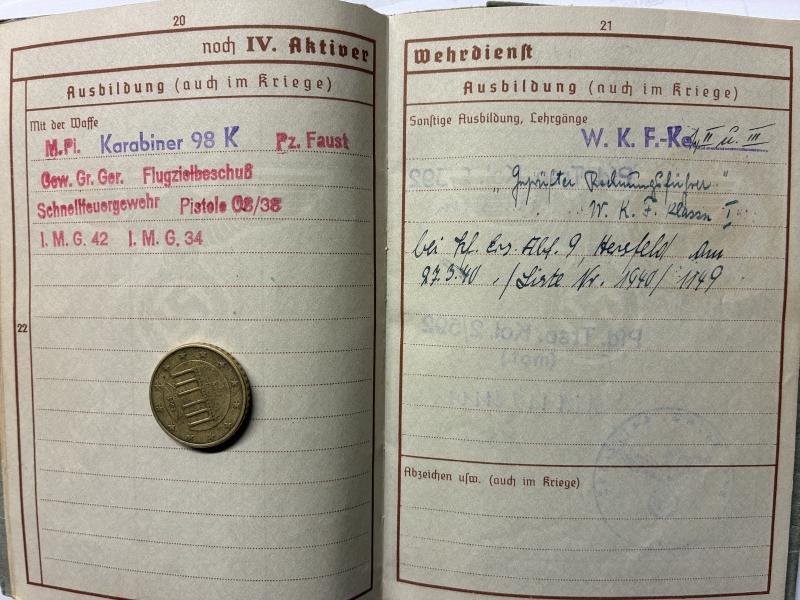 20
noch IV. Aktiver
Ausbildung (auch im Kriege)
Mit der Waffe
M.Pi. Karabiner 98 K Pz. Faust
Gew. Gr. Ger. Flugzielbeschuß
Schnellfeuergewehr Pistole 08/38
l. M. G. 42 l. M. G. 34
22
21
Wehrdienst
Ausbildung (auch im Kriege)
Sonstige Ausbildung, Lehrgänge
W. K. F.- II u. III
"Geprüfter Rechnungsführer"
W. K. F. Klasse I
bei Kf. Ers. Abt. 9, Hersfeld am
27.3.40 ./Liste Nr. 1940/1149
Pfd. Trsp. Kol. 2/592
(mot)
Abzeichen usw. (auch im Kriege)